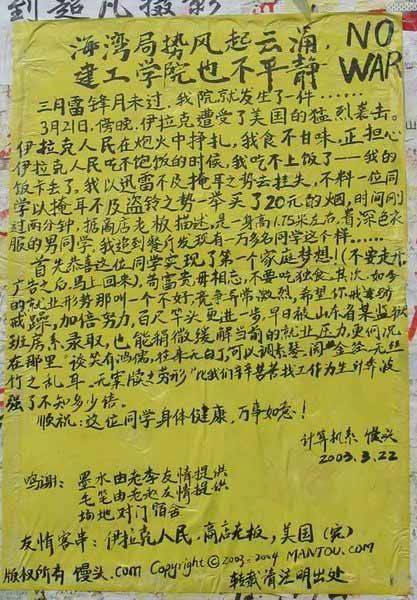 到超凡摄影
海湾局势风起云涌，
建工学院也不平静
NO
WAR
三月雷锋月未过，我院就发生了一件……
3月21日，傍晚，伊拉克遭受了美国的猛烈袭击。
伊拉克人民在炮火中挣扎，我食不甘味，正担心
伊拉克人民吃不饱饭的时候，我吃不上饭了——我的
饭卡丢了，我以迅雷不及掩耳之势去挂失，不料一位同
学以掩耳不及盗铃之势一举买了20元的烟，时间刚
过两分钟，据商店老板描述，是一身高1.75米左右，着深色衣
服的男同学，我追到餐厅发现有一万多名同学这个样……
首先恭喜这位同学实现了第一个家庭梦想！(不要走开，
广告之后，马上回来)，苟富贵毋相忘，不要吃独食，其次，如今
的就业形势那叫一个不好，竞争异常激烈，希望你戒骄
戒躁，加倍努力，百尺竿头更进一步，早日被山东省某监狱
班房系录取，也能稍微缓解当前的就业压力，更何况
在那里“谈笑有鸿儒，往来无白丁，可以调素琴，阅金经，无丝
竹之乱耳，无案牍之劳形”比我们辛辛苦苦找工作为生计奔波
强了不知多少倍。
顺祝：这位同学身体健康，万事如意！
计算机系 馒头
2003.3.22
鸣谢：墨水由老李友情提供
毛笔由老赵友情提供
场地对门宿舍
友情客串：伊拉克人民，商店老板，美国(完)
版权所有 馒头.com Copyright © 2003-2004 MANTOU.COM
转载请注明出处